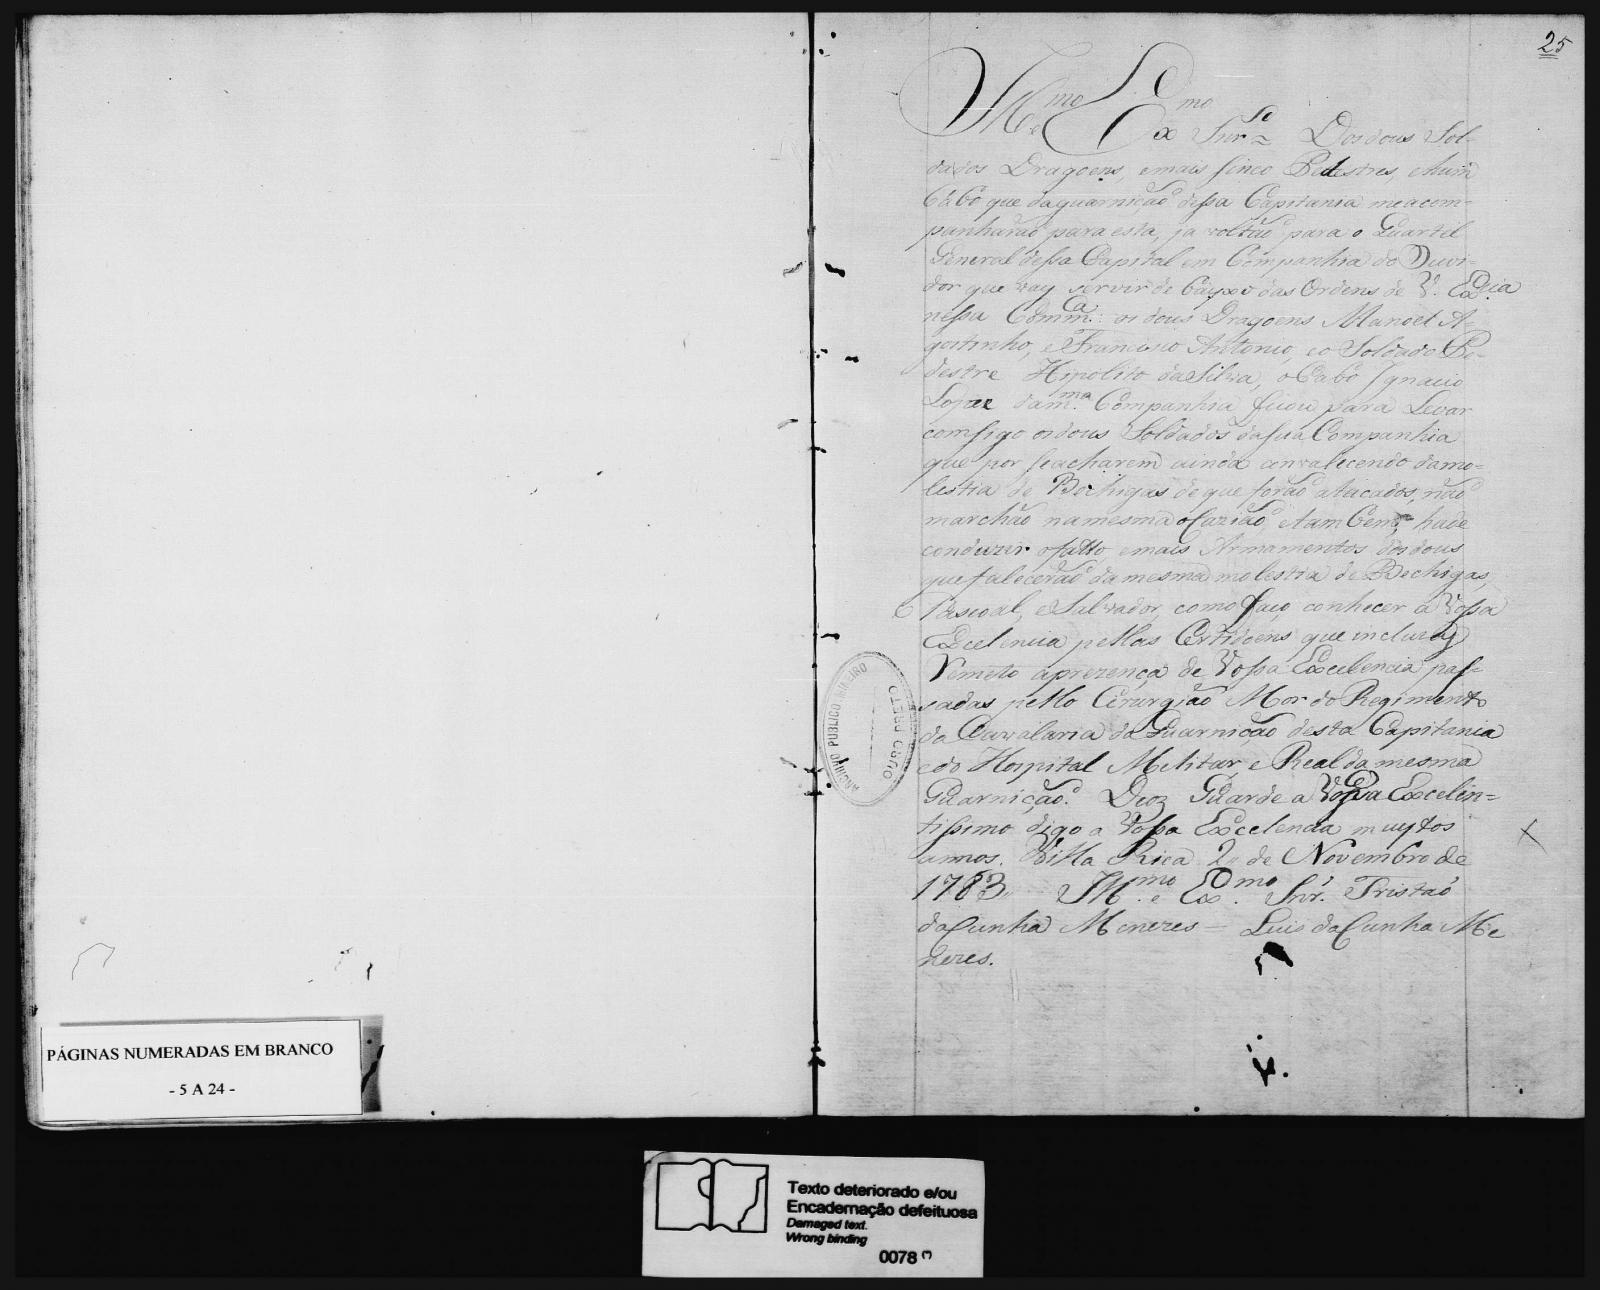 25
Illmo e Exmo Snr Dos dous Sol-
dados Dragoens, e mais sinco Pedestres, e hum
Cabo que da guarnição dessa Capitania me acom-
panharão para esta, ja voltão para o Quartel
General dessa Capital em Companhia do Ouvi-
dor que vay servir de das Ordens de V. Excia
nessa Comm.ca os dous Dragoens Manoel A-
gostinho, e Francisco Antonio, e o Soldado Pe-
destre Hipolito da Silva, o Cabo Ignacio
Lopez da m.ma Companhia ficou para Levar
comsigo os dous Soldados da sua Companhia
que por se acharem ainda convalecendo da mo-
lestia de Bechigas de que forão atacados, não
marchão na mesma ocazião, e tambem hade
conduzir o fatto e mais Armamentos dos dous
que falecerão da mesma molestia de Bechigas,
Pascoal, e Salvador, como faço conhecer a Vossa
Excelencia pellas Certidoens que incluzas
Remeto a prezença de Vossa Excelencia pas-
sadas pello Cirurgião Mor do Regimento
da Cavalaria da Guarnição desta Capitania
e do Hospital Melitar, e Real da mesma
Guarnição. Deoz Guarde a Vossa Excelen=
tissimo digo a Vossa Excelencia muytos
annos. Villa Rica 2 de Novembro de
1783 Illmo e Exmo Snr. Tristão
da Cunha Menezes = Luis da Cunha Me
nezes.
ARCHIVO PUBLICO MINEIRO
OURO PRETO
PÁGINAS NUMERADAS EM BRANCO
- 5 A 24 -
Texto deteriorado e/ou
Encadernação defeituosa
Damaged text.
Wrong binding
0078 (*)